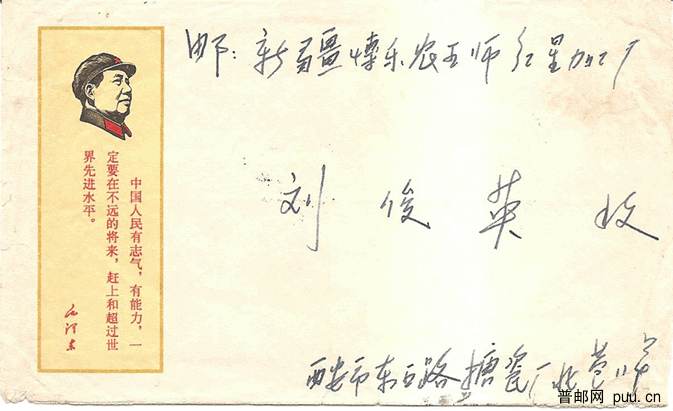 邮：新疆博乐农五师红星加工厂
刘俊英收
西安市东五路搪瓷厂北
中国人民有志气，有能力，一
定要在不远的将来，赶上和超过世
界先进水平。
毛泽东
普邮网 puu.cn